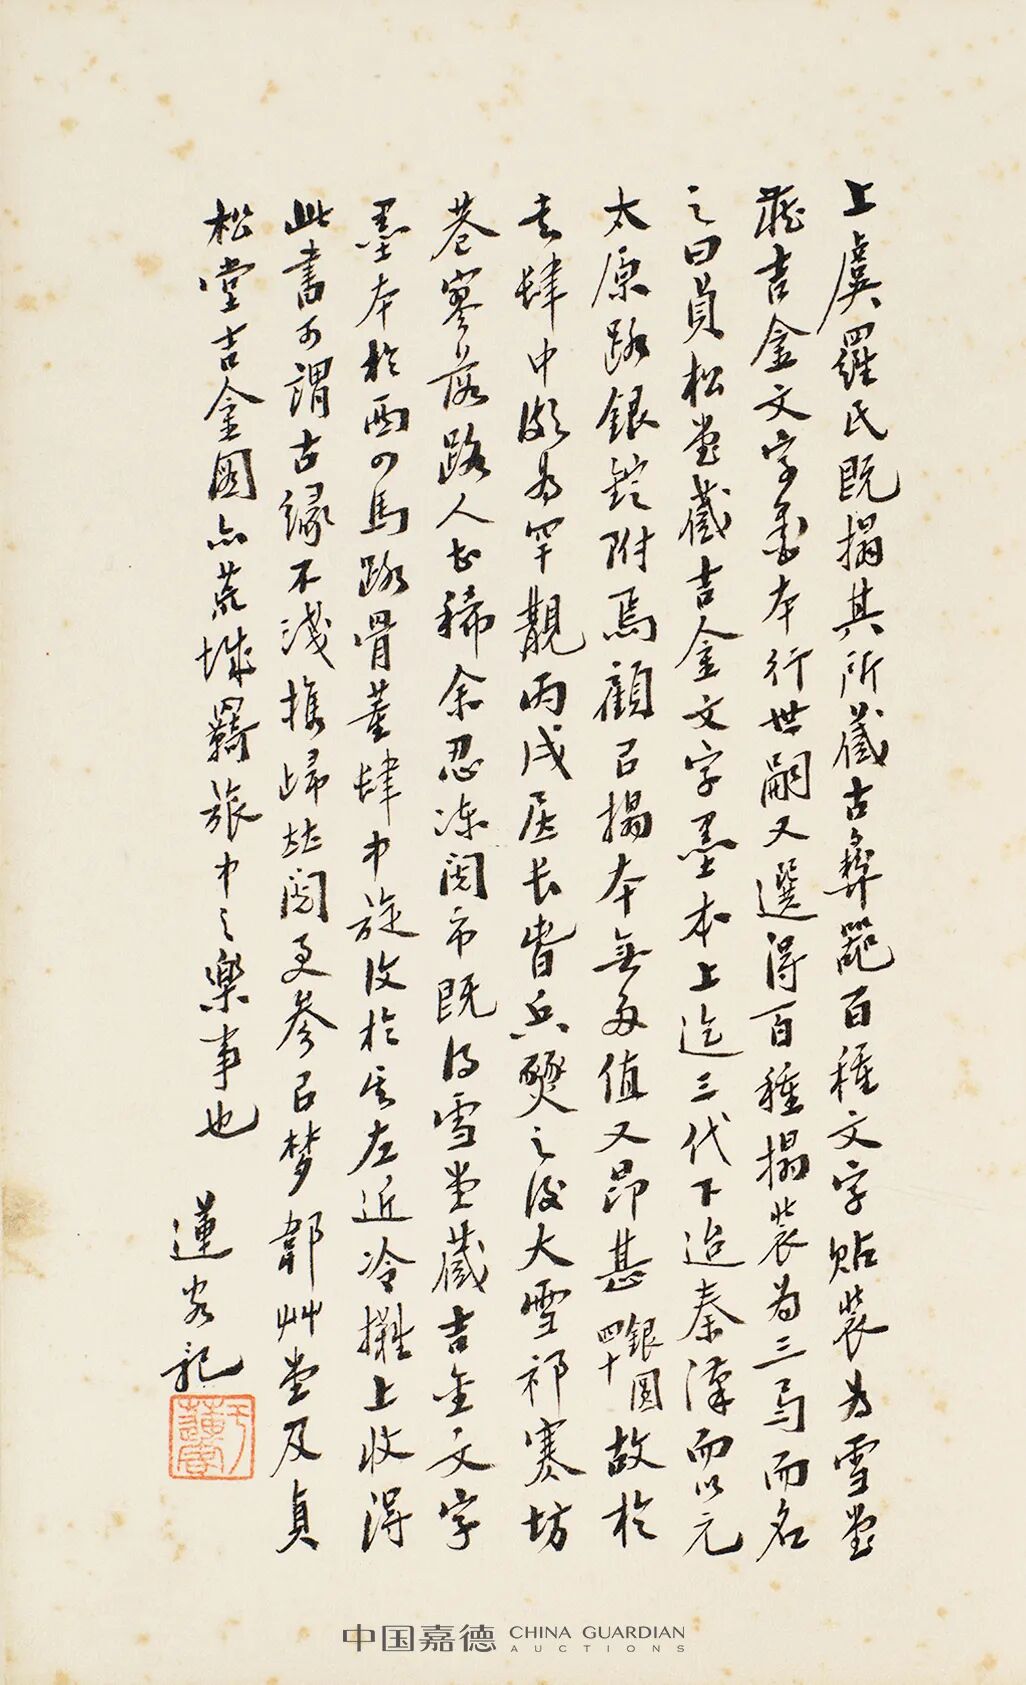 上虞羅氏既搨其所藏古彝器百種文字貼裝為雪堂
藏吉金文字墨本行世嗣又選得百種搨裝為三冩而名
之曰貞松堂藏吉金文字墨本上迄三代下迨秦漢而以元
太原路銀錠附焉顧已搨本無多值又昂甚銀圓四十故於
書肆中頗為罕覯丙戌居長皆兵燹之後大雪祁寒坊
巷寥落路人亦稀余忍凍閱市既得雪堂藏吉金文字
墨本於西四馬路骨董肆中旋復於其左近冷攤上收得
此書可謂古緣不淺攜歸披閱更參已梦鄣艸堂及貞
松堂吉金圖亦荒城羈旅中之樂事也
蓮客記
中国嘉德 CHINA GUARDIAN
AUCTIONS